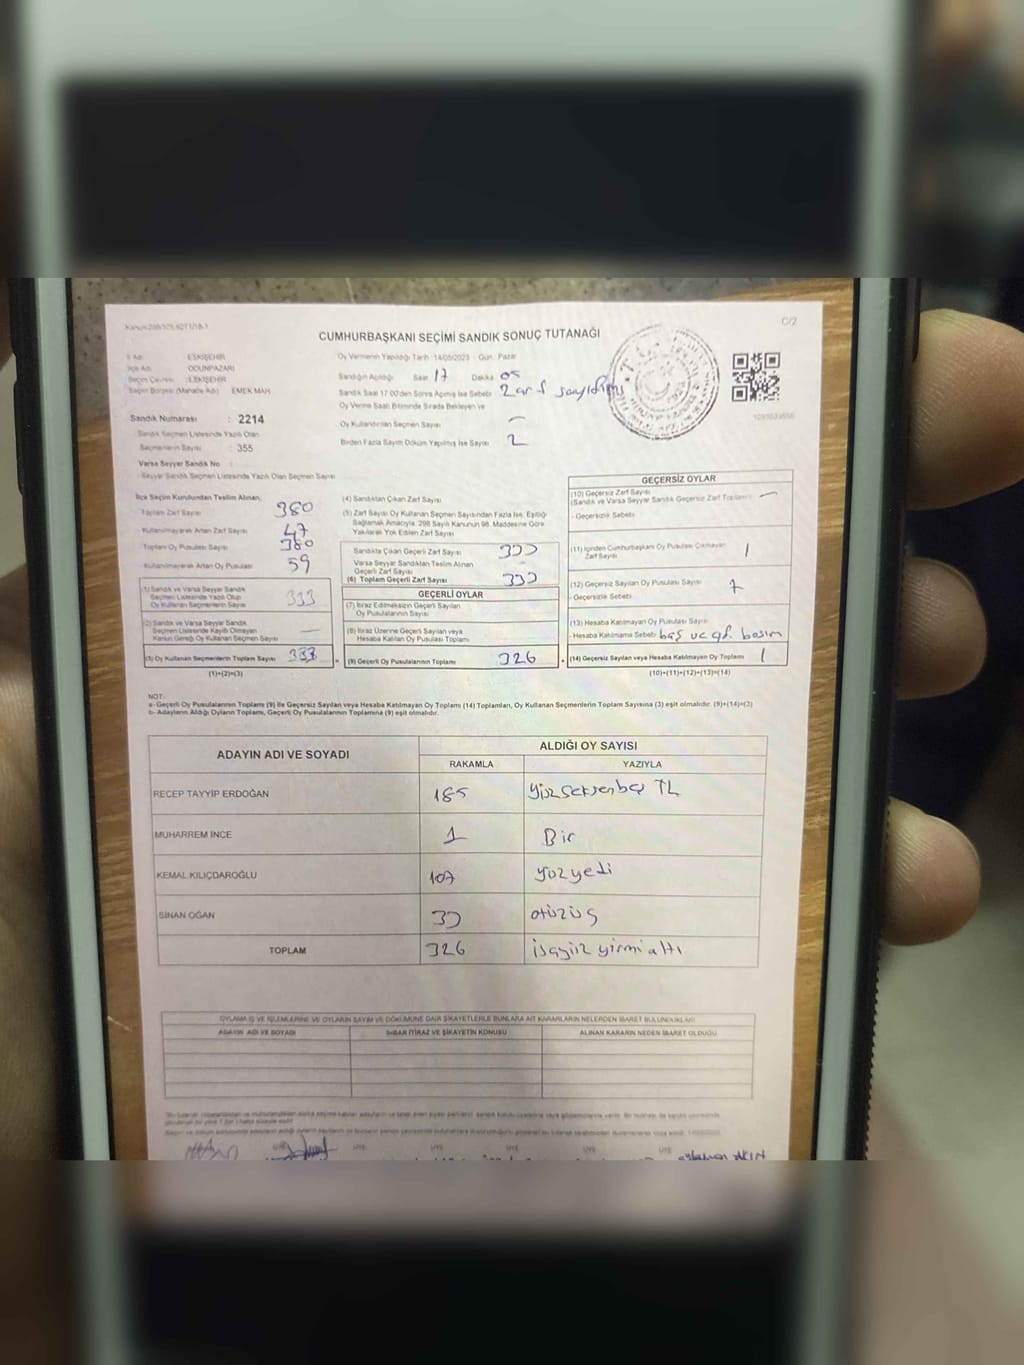 CUMHURBAŞKANI SEÇİMİ SANDIK SONUÇ TUTANAĞI
C/2
İl Adı : ESKİŞEHİR
İlçe Adı : ODUNPAZARI
Seçim Çevresi : ESKİŞEHİR
EMEK MAH
Sandık Numarası : 2214
Sandık Seçmen Listesinde Yazılı Olan
Seçmenlerin Sayısı : 355
Varsa Seyyar Sandık No
Seyyar Sandık Seçmen Listesinde Yazılı Olan Seçmen Sayısı
Oy Vermenin Yapıldığı Tarih :14/05/2023 Gün : Pazar
Sandığın Açıldığı Saat 17 Dakika 05
Sandık Saat 17:00'den Sonra Açılmış İse Sebebi zarf sayıldı
Oy Verme Saati Bitiminde Sırada Bekleyen ve
Oy Kullandırılan Seçmen Sayısı —
Birden Fazla Sayım Döküm Yapılmış İse Sayısı 2
İlçe Seçim Kurulundan Teslim Alınan;
Toplam Zarf Sayısı 380
Kullanılmayarak Artan Zarf Sayısı 47
Toplam Oy Pusulası Sayısı 380
Kullanılmayarak Artan Oy Pusulası 59
(1) Sandık ve Varsa Seyyar Sandık
Seçmen Listesinde Yazılı Olup
Oy Kullanan Seçmenlerin Sayısı 333
(2) Sandık ve Varsa Seyyar Sandık
Seçmen Listesinde Kayıtlı Olmayan
Kanun Gereği Oy Kullanan Seçmen Sayısı —
(3) Oy Kullanan Seçmenlerin Toplam Sayısı 333
(1)+(2)=(3)
(4) Sandıktan Çıkan Zarf Sayısı
Zarf Sayısı Oy Kullanan Seçmen Sayısından Fazla İse, Eşitliği
Sağlamak Amacıyla, 298 Sayılı Kanunun 98. Maddesine Göre
Yakılarak Yok Edilen Zarf Sayısı
Sandıkta Çıkan Geçerli Zarf Sayısı 333
Varsa Seyyar Sandıktan Teslim Alınan
Geçerli Zarf Sayısı
(6) Toplam Geçerli Zarf Sayısı 333
GEÇERLİ OYLAR
(7) İtiraz Edilmeksizin Geçerli Sayılan
Oy Pusulalarının Sayısı
(8) İtiraz Üzerine Geçerli Sayılan veya
Hesaba Katılan Oy Pusulası Toplamı
(9) Geçerli Oy Pusulalarının Toplamı 326
GEÇERSİZ OYLAR
(10) Geçersiz Zarf Sayısı
(Sandık ve Varsa Seyyar Sandık Geçersiz Zarf Toplamı) —
- Geçersizlik Sebebi
(11) İçinden Cumhurbaşkanı Oy Pusulası Çıkmayan
Zarf Sayısı 1
(12) Geçersiz Sayılan Oy Pusulası Sayısı 7
- Geçersizlik Sebebi:
(13) Hesaba Katılmayan Oy Pusulası Sayısı
- Hesaba Katılmama Sebebi
(14) Geçersiz Sayılan veya Hesaba Katılmayan Oy Toplamı 1
(10)+(11)+(12)+(13)=(14)
NOT:
a- Geçerli Oy Pusulalarının Toplamı (9) ile Geçersiz Sayılan veya Hesaba Katılmayan Oy Toplamı (14) Toplamları, Oy Kullanan Seçmenlerin Toplam Sayısına (3) eşit olmalıdır. (9)+(14)=(3)
b- Adayların Aldığı Oyların Toplamı, Geçerli Oy Pusulalarının Toplamına (9) eşit olmalıdır.
ADAYIN ADI VE SOYADI ALDIĞI OY SAYISI
RAKAMLA YAZIYLA
RECEP TAYYİP ERDOĞAN 185 yüzseksenbeş
MUHARREM İNCE 1 Bir
KEMAL KILIÇDAROĞLU 107 yüzyedi
SİNAN OĞAN 33 otüzüç
TOPLAM 326
OYLAMA İŞ VE İŞLEMLERİNE VE OYLARIN SAYIM VE DÖKÜMÜNE DAİR ŞİKAYETLERLE BUNLARA AİT KARARLARIN NELERDEN İBARET BULUNDUKLARI
ADAYIN ADI VE SOYADI İHBAR İTİRAZ VE ŞİKAYETİN KONUSU ALINAN KARARIN NEDEN İBARET OLDUĞU
ÜYE ÜYE ÜYE ÜYE ÜYE ÜYE